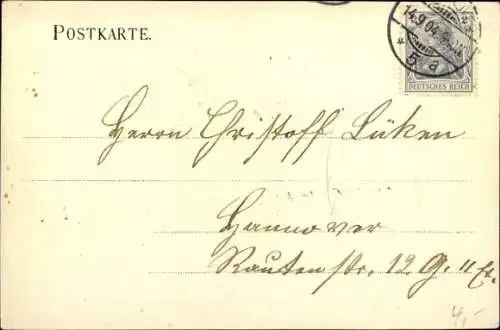 POSTKARTE.
14.9.04.
* 5 a
DEUTSCHES REICH
Herrn Christoff Lüken
Hannover
Rautenstr. 12 G. II Et.
4,-